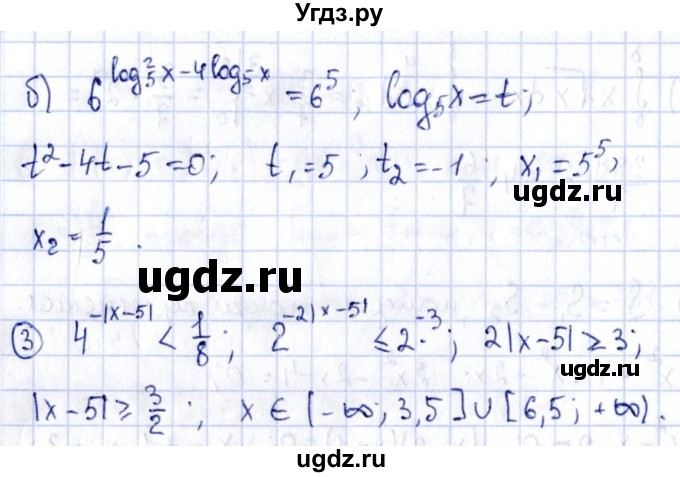 Угдз.ру
б) 6^(log₅²x-4log₅x) = 6⁵; log₅x=t;
t²-4t-5=0; t₁=5; t₂=-1; x₁=5⁵;
ugdz.ru
x₂=1/5.
ugdz.ru
③ 4^(-|x-5|) < 1/8; 2^(-2|x-5|) ≤ 2·⁻³; 2|x-5| ≥ 3;
|x-5| ≥ 3/2; x ∈ (-∞; 3,5] ∪ [6,5; +∞).
ugdz.ru
ugdz.ru